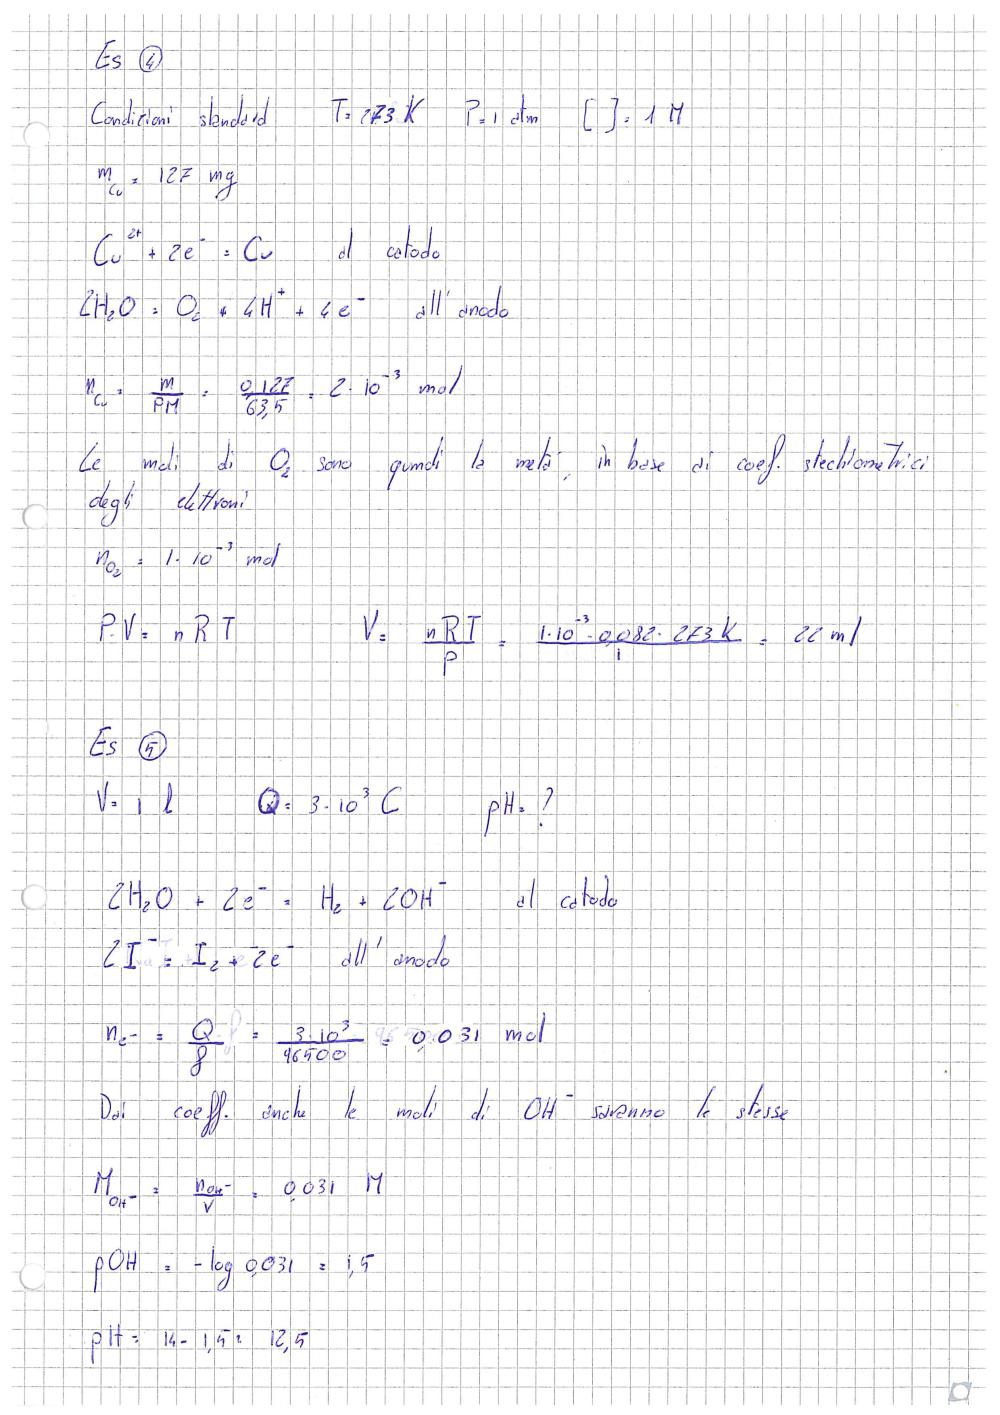 Es ④
Condizioni standard T= 273 K P= 1 atm [ ]= 1 M
m_Cu = 127 mg
Cu²⁺ + 2e⁻ = Cu al catodo
2H₂O = O₂ + 4H⁺ + 4e⁻ all'anodo
n_Cu = m/PM = 0,127/63,5 = 2·10⁻³ mol
Le moli di O₂ sono quindi la metà, in base ai coef. stechiometrici
degli elettroni
n_O₂ = 1·10⁻³ mol
P·V= nRT V= nRT/P = 1·10⁻³·0,082·273K/1 = 22 ml
Es ⑤
V= 1 l Q= 3·10³ C pH= ?
2H₂O + 2e⁻ = H₂ + 2OH⁻ al catodo
2I⁻ = I₂ + 2e⁻ all'anodo
n_e⁻ = Q/f = 3·10³/96500 = 0,031 mol
Dai coeff. anche le moli di OH⁻ saranno le stesse
M_OH⁻ = n_OH⁻/V = 0,031 M
pOH = -log 0,031 = 1,5
pH = 14 - 1,5 = 12,5